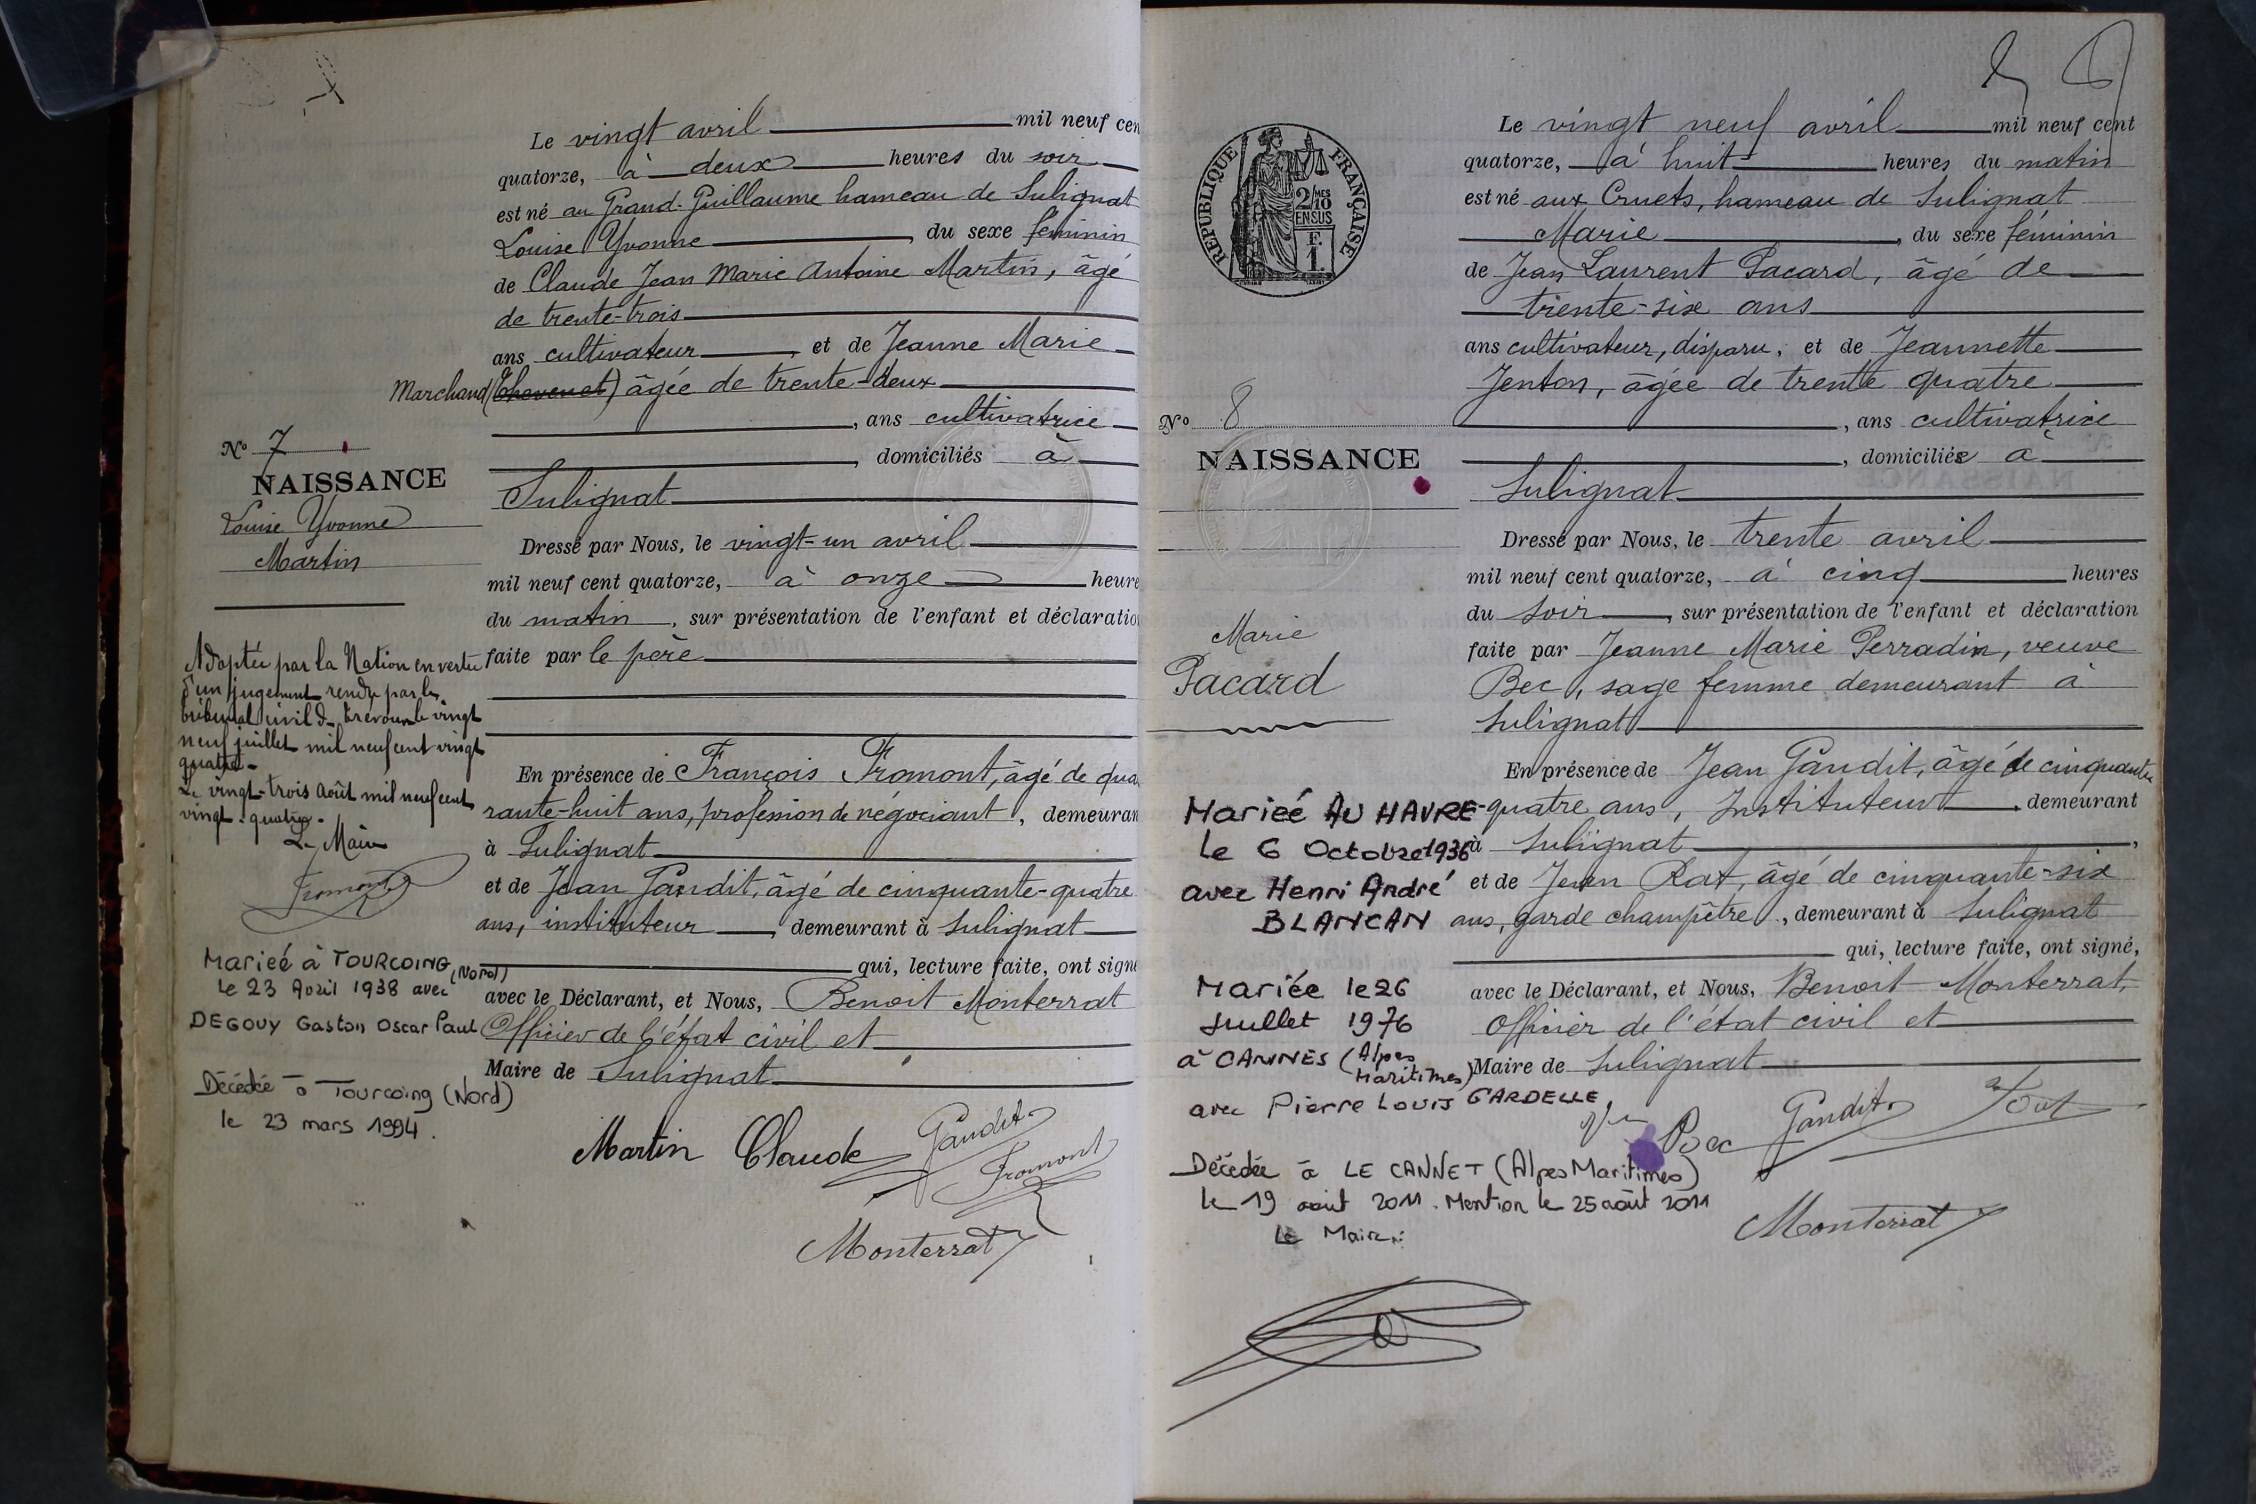 Le vingt avril mil neuf cen
quatorze, à deux heures du soir
est né au Grand-Guillaume hameau de Sulignat
Louise Yvonne, du sexe féminin
de Claude Jean Marie Antoine Martin, âgé
de trente-trois
ans cultivateur, et de Jeanne Marie
Marchand (Thevenet) âgée de trente-deux
, ans cultivatrice
, domiciliés à
Sulignat
Dressé par Nous, le vingt-un avril
mil neuf cent quatorze, à onze heure
du matin, sur présentation de l'enfant et déclaratio
faite par le père
En présence de François Fromont, âgé de qua
rante-huit ans, profession de négociant, demeuran
à Sulignat
et de Jean Gandit, âgé de cinquante-quatre
ans, instituteur, demeurant à Sulignat
qui, lecture faite, ont signé
avec le Déclarant, et Nous, Benoit Monterrat
Officier de l'état civil et
Maire de Sulignat
Martin Claude Gandit
Fromont
Monterrat
No 7
NAISSANCE
Louise Yvonne
Martin
Adoptée par la Nation en vertu
d'un jugement rendu par le
tribunal civil de Trévoux le vingt
neuf juillet mil neuf cent vingt
quatre-
Le vingt-trois Août mil neuf cent
vingt-quatre-
Le Maire
Fromont
Mariée à TOURCOING (Nord)
Le 23 Avril 1938 avec
DEGOUY Gaston Oscar Paul
Décédée à Tourcoing (Nord)
le 23 mars 1994.
Le vingt neuf avril mil neuf cent
quatorze, à huit heures du matin
est né aux Cruets, hameau de Sulignat
Marie, du sexe féminin
de Jean Laurent Pacard, âgé de
trente-six ans
ans cultivateur, disparu, et de Jeannette
Jenton, âgée de trente quatre
, ans cultivatrice
, domiciliée à
Sulignat
Dressé par Nous, le trente avril
mil neuf cent quatorze, à cinq heures
du soir, sur présentation de l'enfant et déclaration
faite par Jeanne Marie Perradin, veuve
Bec, sage femme demeurant à
Sulignat
En présence de Jean Gandit, âgé de cinquante
-quatre ans, Instituteur, demeurant
à Sulignat,
et de Jean Rat, âgé de cinquante-six
ans, garde champêtre, demeurant à Sulignat
qui, lecture faite, ont signé,
avec le Déclarant, et Nous, Benoit Monterrat,
Officier de l'état civil et
Maire de Sulignat
Bec Gandit
Monterrat
RÉPUBLIQUE FRANÇAISE
2/10 MES
EN SUS
F.
1.
No 8
NAISSANCE
Marie
Pacard
Mariéé AU HAVRE
Le 6 Octobre 1936
avec Henri André
BLANCAN
Mariée le 26
Juillet 1976
à CANNES (Alpes
Maritimes)
avec Pierre Louis GARDELLE
Décédée à LE CANNET (Alpes Maritimes)
le 19 août 2011. Mention le 25 août 2011
Le Maire: